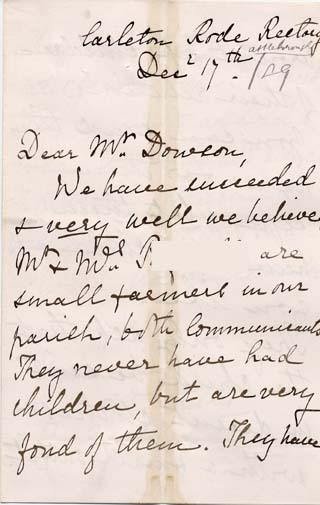 Carleton Rode Rectory
Attleborough
Decr 17th /89
Dear Mr. Dowson,
We have succeeded
& very well we believe,
Mr & Mrs P. are
small farmers in our
parish, both Communicants
They never have had
children, but are very
fond of them. They have